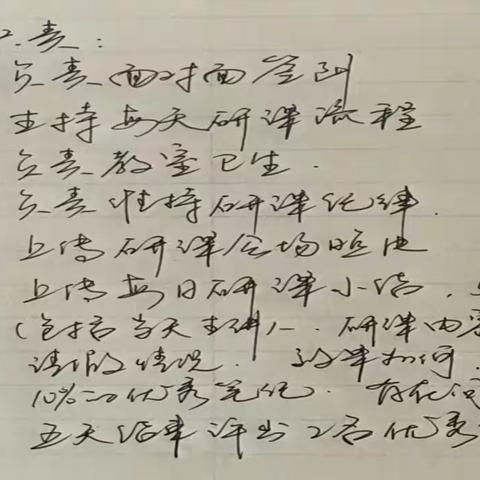 职责：
负责面对面签到
主持每天研课流程
负责教室卫生．
负责维持研课纪律．
上传研课会场照片
上传每日研课小结．
（包括当天主讲人、研课内容
请假情况． 效率如何．
10%的优秀笔记． 存在
五天结束评出2名优秀